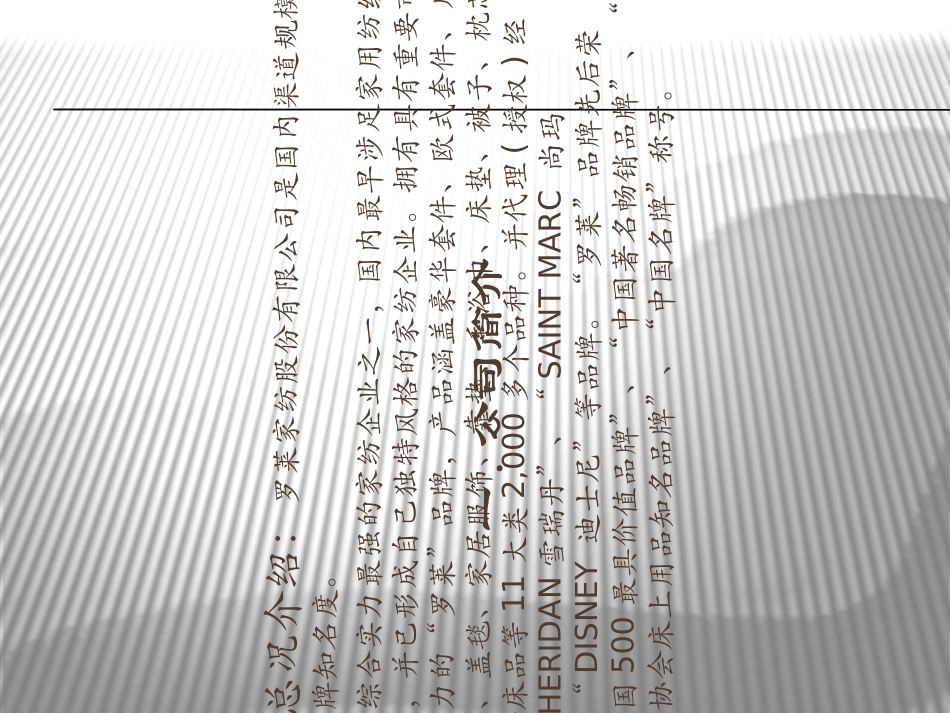 一、公司简介
总况介绍：罗莱家纺股份有限公司是国内渠道规模
牌知名度。
综合实力最强的家纺企业之一，国内最早涉足家用纺
，并已形成自己独特风格的家纺企业。拥有具有重要
力的“罗莱”品牌，产品涵盖豪华套件、欧式套件、
、盖毯、家居服饰、、床垫、被子、枕
床品等11大类2,000多个品种。并代理(授权)经
HERIDAN雪瑞丹”、“SAINT MARC尚玛
“DISNEY迪士尼”等品牌。“罗莱”品牌先后荣
国500最具价值品牌”、“中国著名畅销品牌”、“
协会床上用品知名品牌”、“中国名牌”称号。